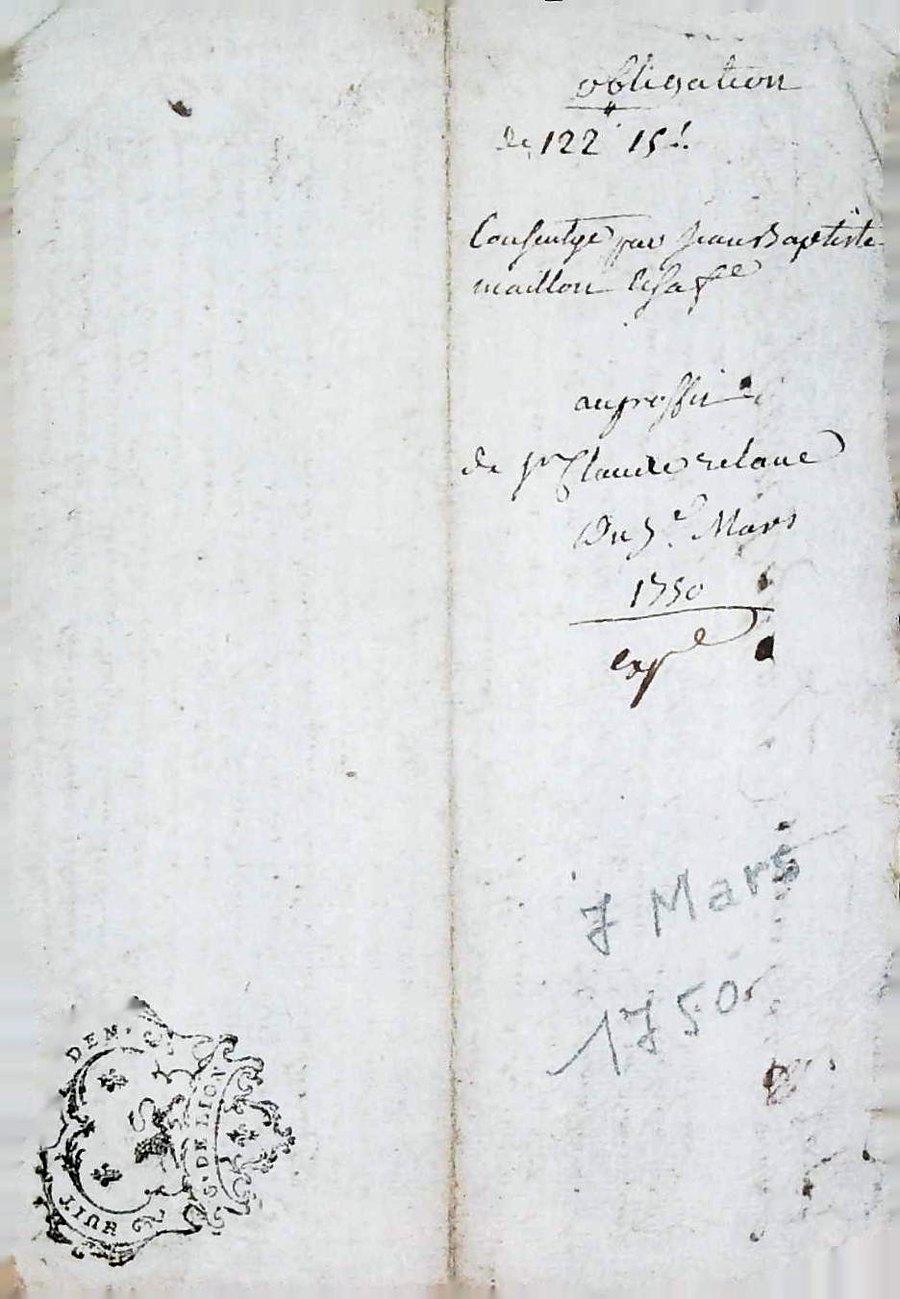 obligation
de 122 15 s.
Consentye par Jean Baptiste
maillon et sa fe
au proffit
de sr Claude relave
Du 7e Mars
1750
expe
7 Mars
1750
HUIT DEN.
G. DE LION